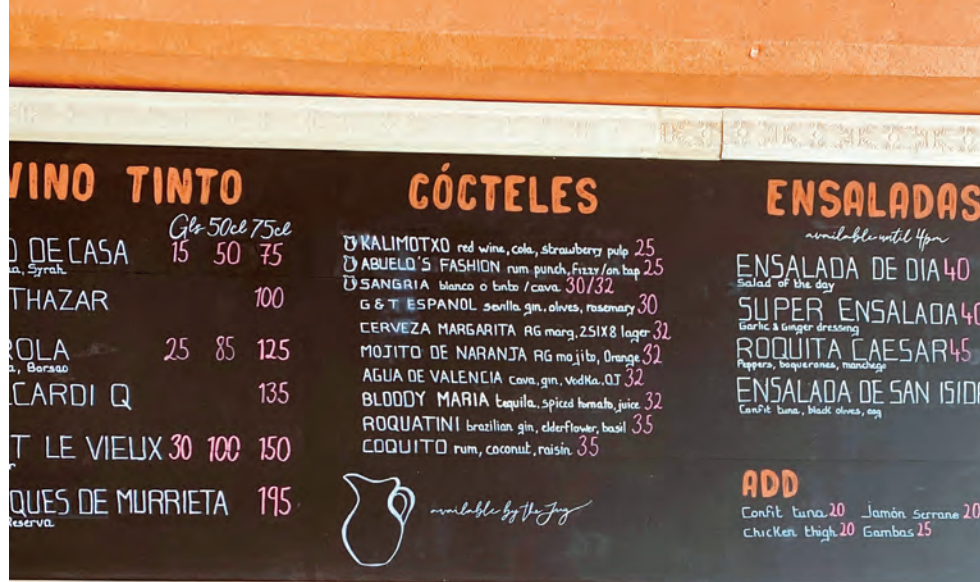 VINO TINTO
Gls 50cl 75cl
DE CASA 15 50 75
Syrah
THAZAR 100
ROLA 25 85 125
Borsao
CARDI Q 135
T LE VIEUX 30 100 150
QUES DE MURRIETA 195
Reserva
CÓCTELES
KALIMOTXO red wine, cola, strawberry pulp 25
ABUELO'S FASHION rum punch, Fizzy/on tap 25
SANGRIA blanco o tinto / cava 30/32
G & T ESPANOL sevilla gin, olives, rosemary 30
CERVEZA MARGARITA RG marg, 2SIX8 lager 32
MOJITO DE NARANJA RG mojito, Orange 32
AGUA DE VALENCIA Cava, gin, Vodka, OJ 32
BLOODY MARIA tequila, spiced tomato, juice 32
ROQUATINI brazilian gin, elderflower, basil 35
COQUITO rum, coconut, raisin 35
available by the Jug
ENSALADAS
available until 4pm
ENSALADA DE DIA 40
Salad of the day
SUPER ENSALADA 40
Garlic & Ginger dressing
ROQUITA CAESAR 45
Peppers, boquerones, manchego
ENSALADA DE SAN ISID
Confit tuna, black olives, egg
ADD
Confit tuna 20 Jamón Serrano 20
Chicken thigh 20 Gambas 25